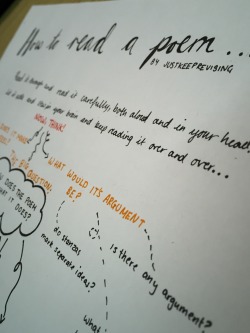 How to read a poem...
BY JUSTKEEPREVISING
Read it through and read it carefully, both aloud and in your head,
Let it settle and churn your brain and keep reading it over and over...
NOW, THINK!
BIG QUESTION
WHAT WOULD IT'S ARGUMENT
BE?
DOES THE POEM
WHAT IT DOES?
do stanzas
mark separate ideas?
Is there any argument?
What